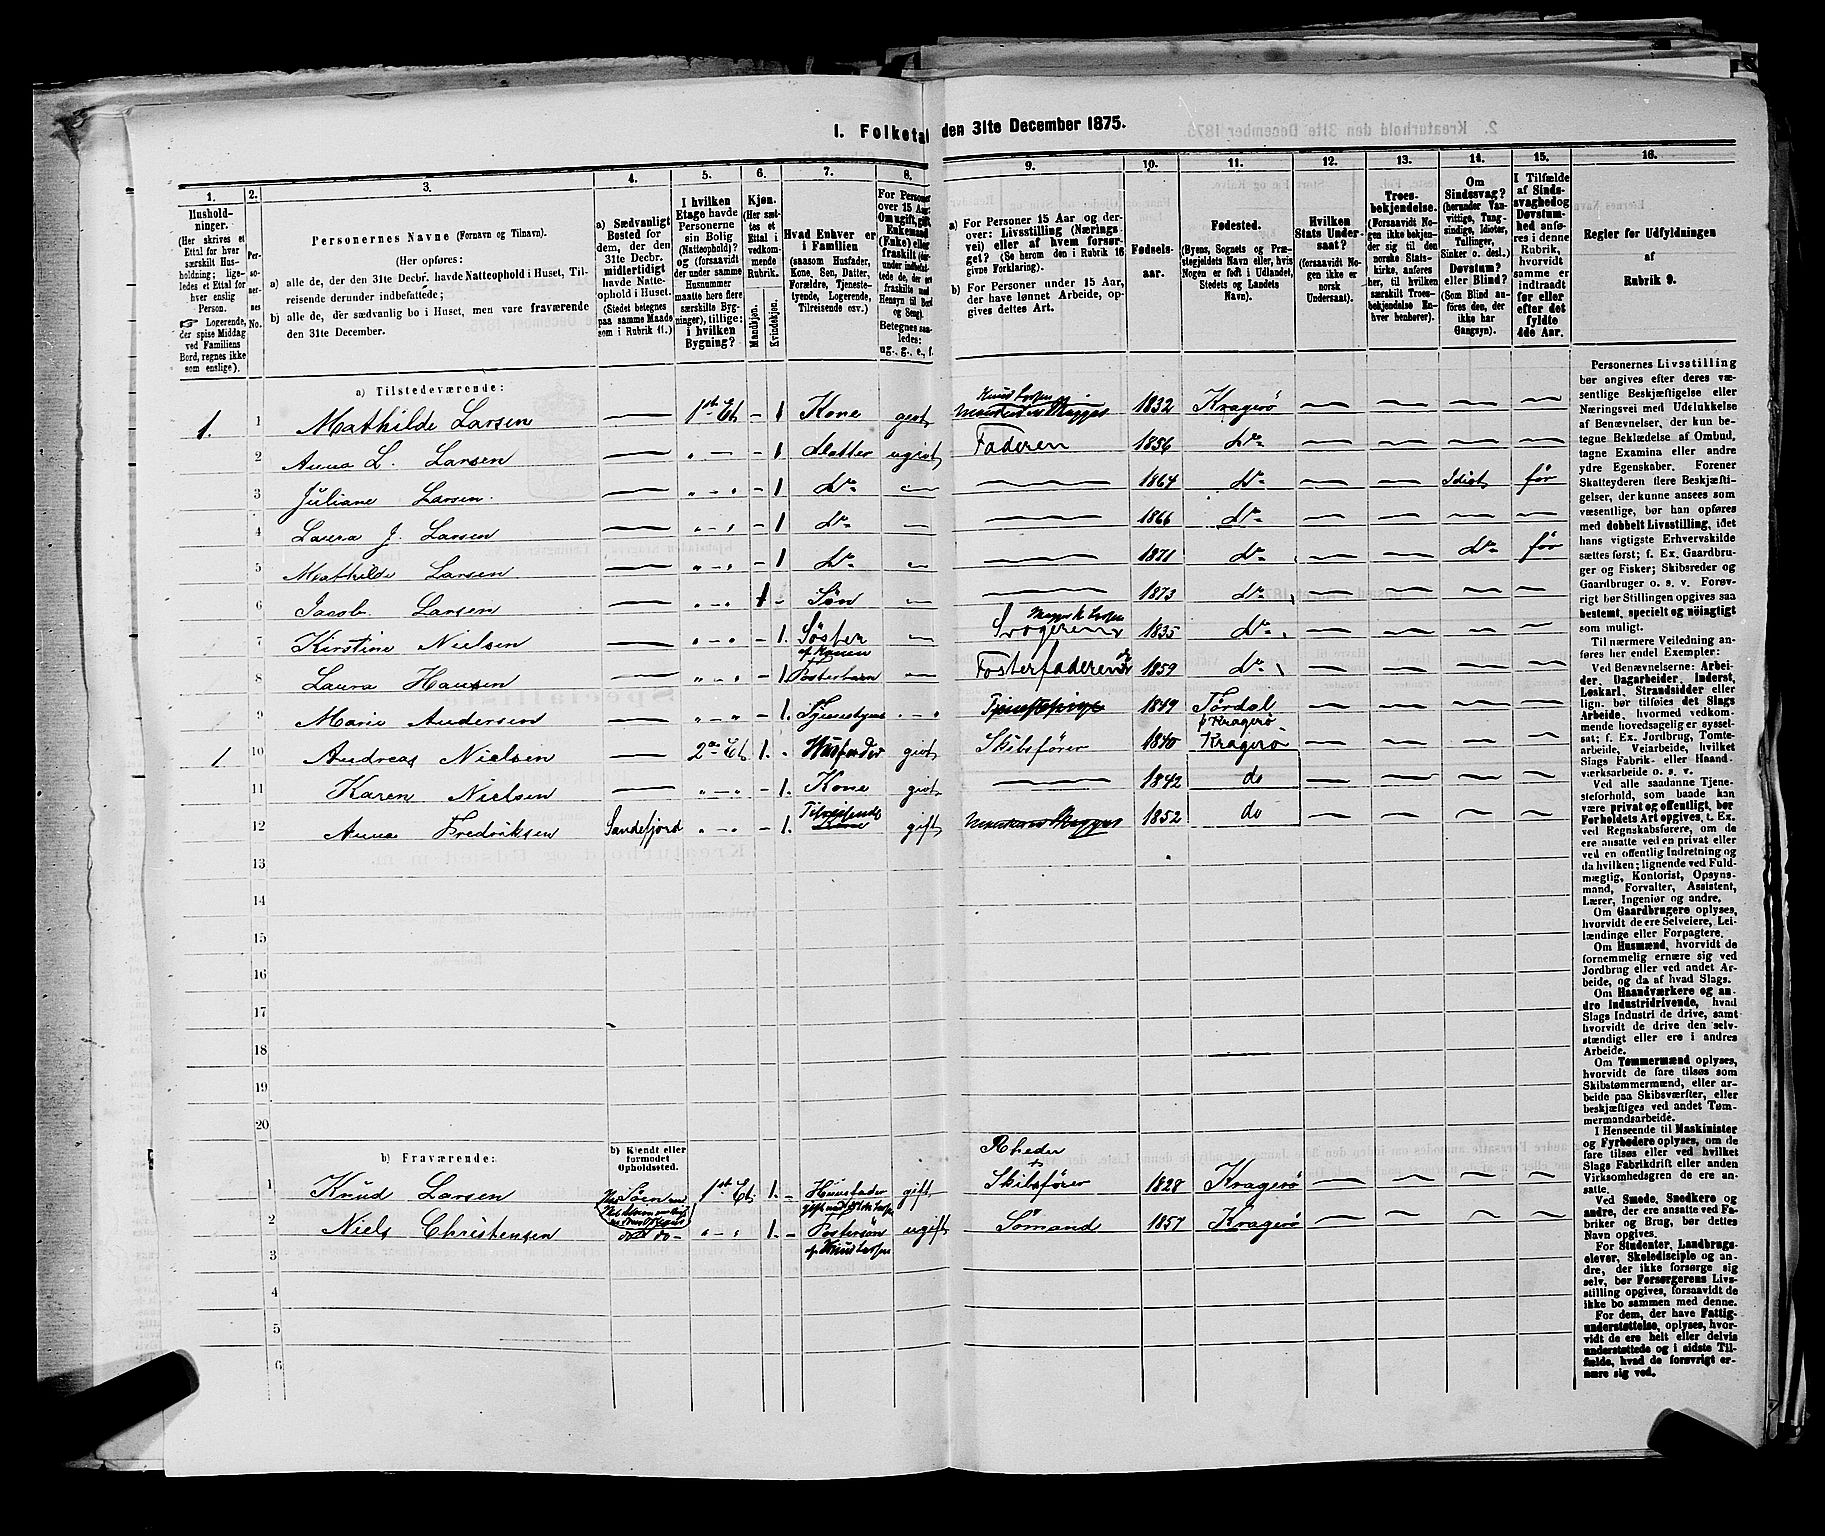 1. Folketal den 31te December 1875.
1.
2.
3.
4.
5.
6.
7.
8.
9.
10.
11.
12.
13.
14.
15.
16.
Husholdninger.
(Her skrives et
Ettal for hver
særskilt Husholdning;
ligeledes et Ettal for
hver enslig
Person.
☞ Logerende,
der spise Middag
ved Familiens
Bord, regnes ikke
som enslige).
Personernes No.
Personernes Navne (Fornavn og Tilnavn).
(Her opføres:
a) alle de, der den 31te Decbr. havde Natteophold i Huset, Tilreisende derunder indbefattede;
b) alle de, der sædvanlig bo i Huset, men vare fraværende
den 31te December.
a) Sædvanligt
Bosted for
dem, der den
31te Decbr.
midlertidigt
havde Natteophold
i Huset.
(Stedet betegnes
paa samme Maade
som i Rubrik 11.)
I hvilken
Etage havde
Personerne
sin Bolig
(Natteophold)?
og (forsaavidt
der under samme
Husnummer
maatte høre flere
særskilte Bygninger),
tillige:
i hvilken
Bygning?
Kjøn.
(Her sættes et
Ettal i
vedkommende
Rubrik.
Mandkjøn.
Kvindekjøn.
Hvad Enhver er
i Familien
(saasom Husfader,
Kone, Søn, Datter,
Forældre, Tjenestetyende,
Logerende,
Tilreisende osv.)
For Personer
over 15 Aar:
Om ugift, gift,
Enkemand
(Enke) eller
fraskilt
Betegnes saaledes:
ug., g., e., f.
a) For Personer 15 Aar og derover: Livsstilling (Næringsvei) eller af hvem forsørget? (Se herom den i Rubrik 16
givne Forklaring).
b) For Personer under 15 Aar,
der have lønnet Arbeide, opgives dettes Art.
Fødselsaar.
Fødested.
(Byens, Sognets og Præstegjeldets Navn eller, hvis
Nogen er født i Udlandet,
Stedets og Landets
Navn).
Hvilken
Stats Undersaat?
(forsaavidt Nogen ikke er
norsk
Undersaat).
Troesbekjendelse.
(Forsaavidt Nogen ikke bekjender sig til den
norske Statskirke, anføres
her, til hvilken
særskilt Troesbekjendelse Enhver henhører).
Om
Sindssvag?
(herunder Vanvittige, Tungsindige, Idioter,
Tullinger,
Sinker o. desl.)
Døvstum?
eller Blind?
(Som Blind anføres den, der
ikke har
Gangsyn).
I Tilfælde
af Sindssvaghed og
Døvstumhed anføres i denne
Rubrik,
hvorvidt
samme er
indtraadt
før eller
efter det
fyldte
4de Aar.
Regler for Udfyldningen
af
Rubrik 9.
a) Tilstedeværende:
1. 1 Mathilde Larsen — 1ste Et. – 1 Kone gift Knud Larsen 1832 Kragerö — — — —
2 Anna L. Larsen — „ – 1 Datter ugift Faderen 1856 do — — — —
3 Juliane Larsen — „ – „ – 1 do — — 1864 do — — Idiot før
4 Laura J. Larsen — „ – „ – 1 do — — 1866 do — — — —
5 Mathilde Larsen — „ – „ – 1 do — — 1871 do — — do før
6 Jacob Larsen — „ – „ 1 – Søn — — 1873 do — — — —
7 Kirstine Nielsen — „ – „ – 1. Söster af Konen — Svogeren 1835 do — — — —
8 Laura Hansen — „ – „ – 1. Fosterbarn — Fosterfaderen 1859 do — — — —
9 Marie Andersen — „ – „ – 1. „ – „ 1849 Tördal p Kragerö — — — —
1 10 Andreas Nielsen — 2den Et. 1. – Husfader gift Skibsfører 1840 Kragerö — — — —
11 Karen Nielsen — „ – „ – 1 Kone gift — 1842 do — — — —
12 Anna Fredriksen Sandefjord „ – „ – 1. Tilreisende gift 1852 do — — — —
13
14
15
16
17
18
19
20
b) Fraværende:
b) Kjendt eller
formodet
Opholdssted.
1 Knud Larsen 1ste Et. 1. – Huusfader gift Rheder + Skibsfører 1828 Kragerö — — — —
2 Niels Christensen „ – „ 1. – Fostersøn af Knud Larsen ugift Sømand 1857 Kragerö — — — —
3
4
5
6
Personernes Livsstilling
bør angives efter deres væsentlige Beskjæftigelse eller
Næringsvei med Udelukkelse
af Benævnelser, der kun betegne Beklædelse af Ombud,
tagne Examina eller andre
ydre Egenskaber. Forener
Skatteyderen flere Beskjæftigelser, der kunne ansees som
væsentlige, bør han opføres
med dobbelt Livsstilling, idet
hans vigtigste Erhvervskilde
sættes først; f. Ex. Gaardbruger og Fisker; Skibsreder og
Gaardbruger o. s. v. Forøvrigt bør Stillingen opgives saa
bestemt, specielt og nöiagtigt
som muligt.
Til nærmere Veiledning anføres her endel Exempler:
Ved Benævnelserne: Arbeider, Dagarbeider, Inderst,
Løskarl, Strandsidder eller
lign. bør tilføies det Slags
Arbeide, hvormed vedkommende hovedsagelig er sysselsat; f. Ex. Jordbrug, Tomtearbeide, Veiarbeide, hvilket
Slags Fabrik- eller Haandværksarbeide o. s. v.
Ved alle saadanne Tjenesteforhold, som baade kan
være privat og offentligt, bør
Forholdets Art opgives, t. Ex.
ved Regnskabsførere, om de
ere ansatte ved en privat eller
ved en offentlig Indretning og
da hvilken; lignende ved Fuldmægtig, Kontorist, Opsynsmand, Forvalter, Assistent,
Lærer, Ingeniør og andre.
Om Gaardbrugere oplyses,
hvorvidt de ere Selveiere, Leilændinge eller Forpagtere.
Om Husmænd, hvorvidt de
fornemmelig ernære sig ved
Jordbrug eller ved andet Arbeide, og da af hvad Slags.
Om Haandværkere og andre Industridrivende, hvad
Slags Industri de drive, samt
hvorvidt de drive den selvstændigt eller ere i andres
Arbeide.
Om Tømmermænd oplyses,
hvorvidt de fare tilsøs som
Skibstømmermænd, eller arbeide paa Skibsværfter, eller
beskjæftiges ved andet Tømmermandsarbeide.
I Henseende til Maskinister
og Fyrbødere oplyses, om de
fare tilsøs eller ved hvilket
Slags Fabrikdrift eller anden
Virksomhedsgren de ere ansatte.
Ved Smede, Snedkere og
andre, der ere ansatte ved Fabriker og Brug, bør dettes
Navn opgives.
For Studenter, Landbrugselever, Skoledisciple og andre, der ikke forsørge sig
selv, bør Forsørgerens Livsstilling opgives, forsaavidt de
ikke bo sammen med denne.
For dem, der have Fattigunderstøttelse, oplyses, hvorvidt de ere helt eller delvis
understøttede og i sidste Tilfælde, hvad de forøvrigt ernære sig ved.